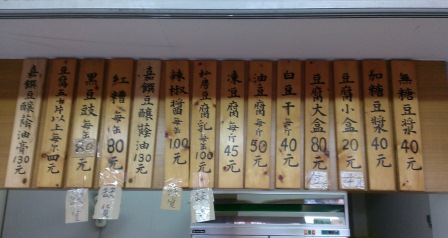 無糖豆漿 40元
加糖豆漿 40元
豆腐小盒 20元
豆腐大盒 80元
白豆干每斤 40元
油豆腐每斤 50元
凍豆腐每斤 45元
豆腐乳每缶 100元
辣椒醬每缶 100元
嘉饌豆釀蔭油 130元
紅糟每缶 80元
黑豆豉每缶
豆腐五十片以上每斤四元
嘉饌豆釀蔭油膏 130元